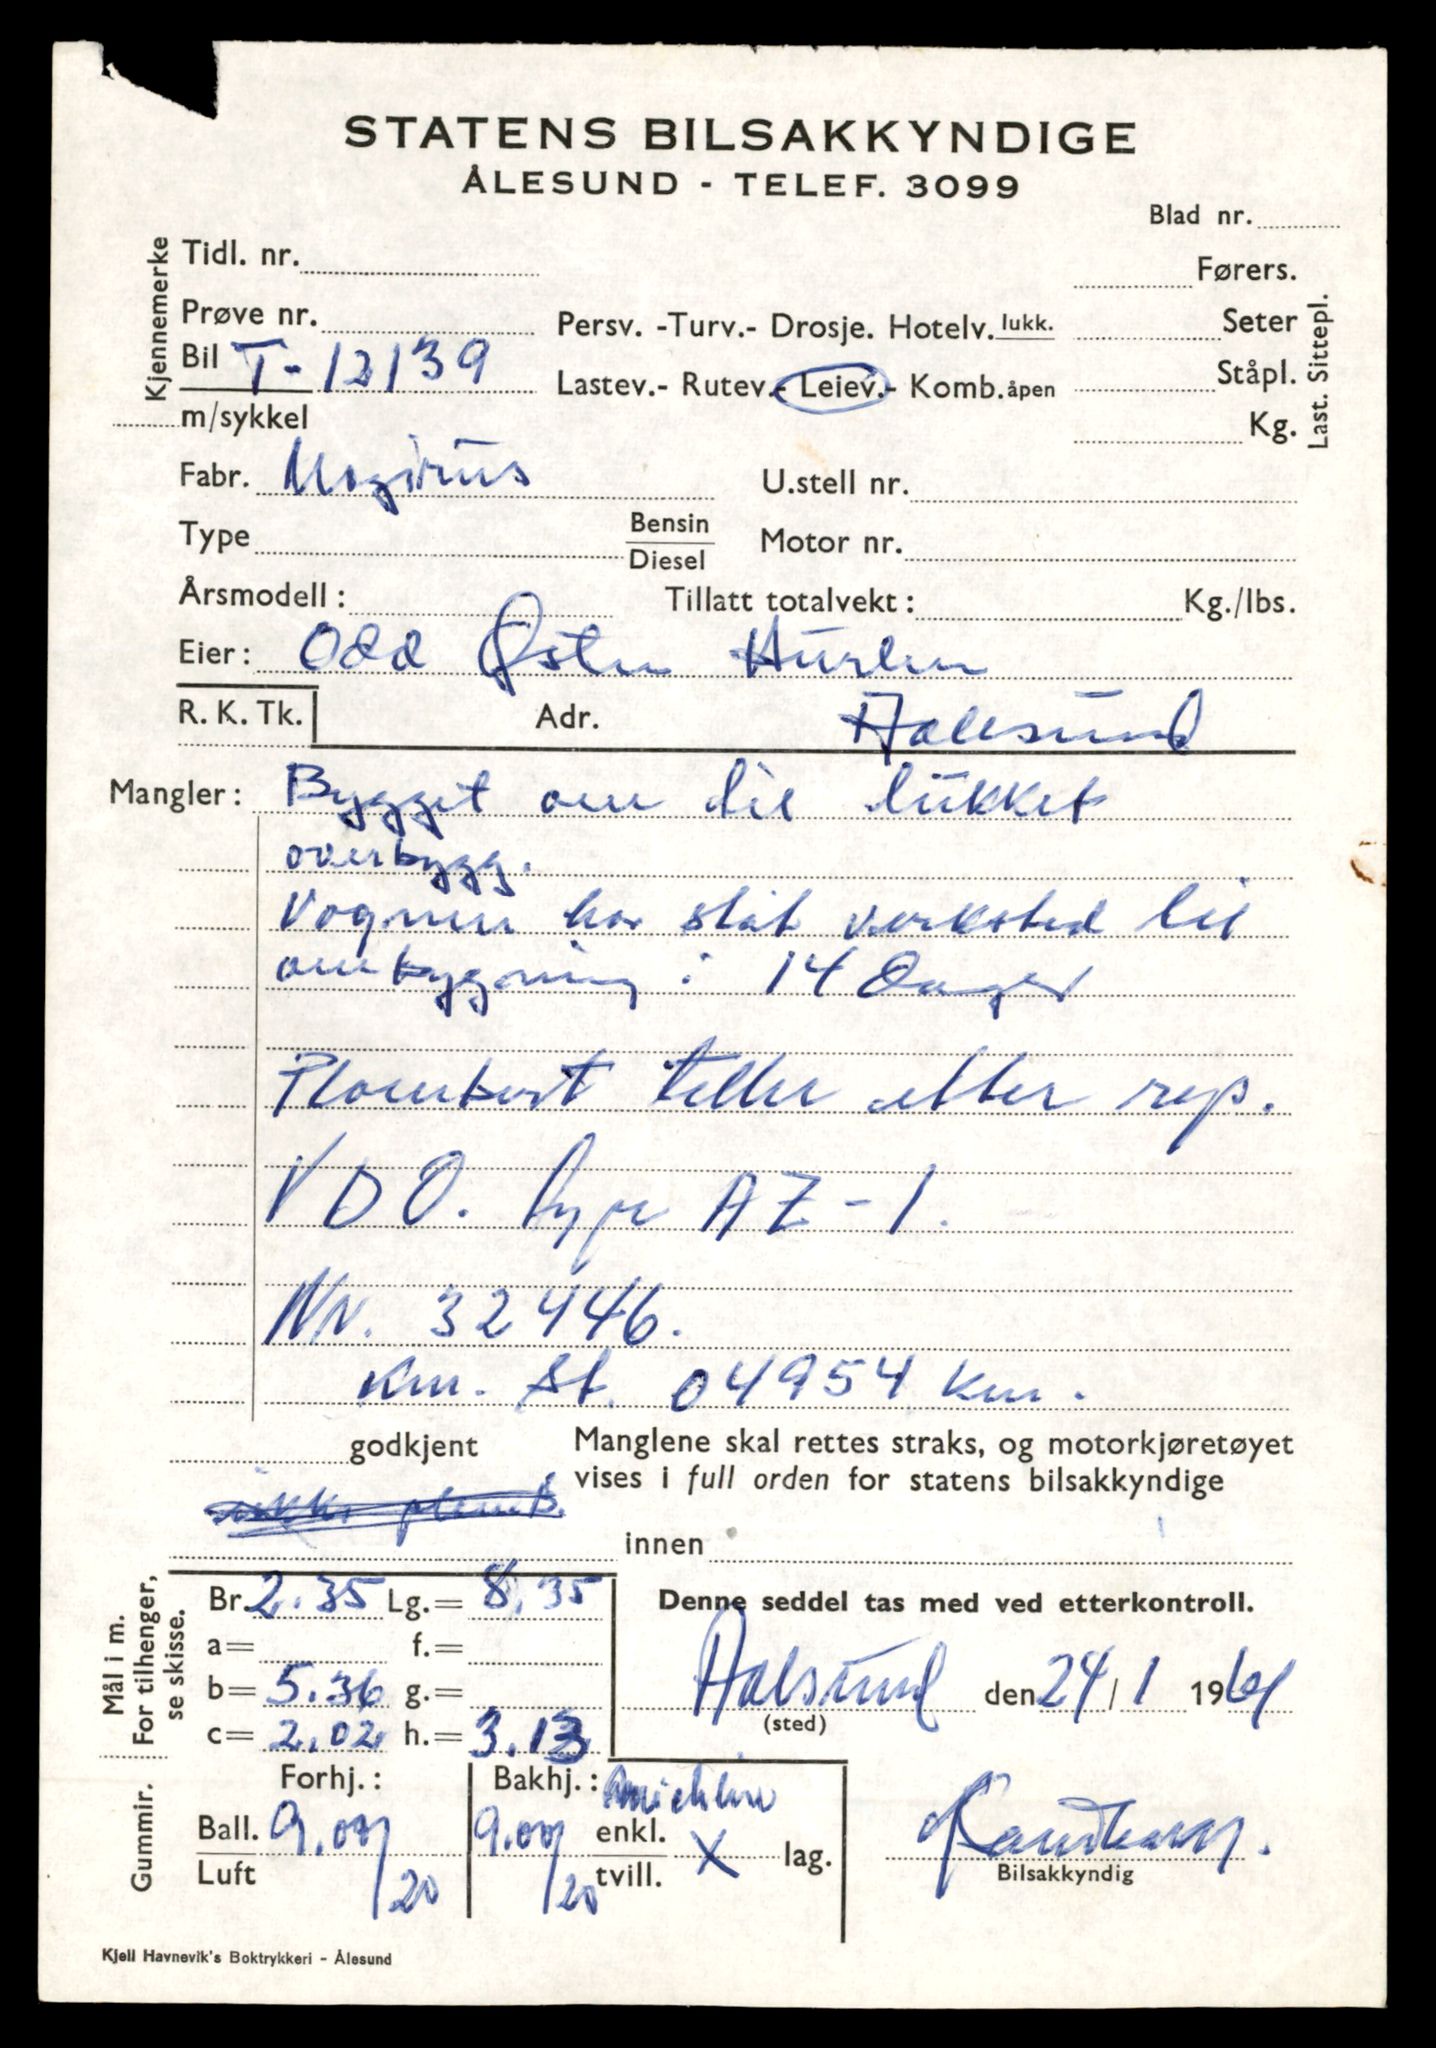 STATENS BILSAKKYNDIGE
ÅLESUND - TELEF. 3099
Blad nr.
Kjennemerke
Tidl. nr.
Førers.
Prøve nr.
Persv. -Turv.- Drosje. Hotelv. lukk.
Seter
Bil T-12139
Lastev.- Rutev.- Leiev.- Komb. åpen
Ståpl.
m/sykkel
Kg.
Last. Sittepl.
Fabr. Magirus
U.stell nr.
Type
Bensin
Diesel
Motor nr.
Årsmodell:
Tillatt totalvekt: Kg./lbs.
Eier: Odd Østen Hurlen
R. K. Tk.
Adr. Aalesund
Mangler: Bygget om til lukket
overbygg.
Vognen har ståt verksted til
ombygning i 14 Dager
Plombert teller etter rep.
VDO. Type AZ-1.
Nr. 32446.
Km. St. 04954 km.
godkjent
Manglene skal rettes straks, og motorkjøretøyet
vises i full orden for statens bilsakkyndige
ikke plomb.
innen
Mål i m.
For tilhenger,
se skisse.
Br. 2.35 Lg.= 8.35
Denne seddel tas med ved etterkontroll.
a= f.=
b= 5.36 g.=
Aalsund den 24/1 1964
(sted)
c= 2.02 h.= 3.13
Gummir.
Forhj.:
Bakhj.: Michelin
Ball. 9.00/20
9.00/20 enkl. X lag.
Luft
tvill.
Bilsakkyndig
Kjell Havnevik's Boktrykkeri - Ålesund